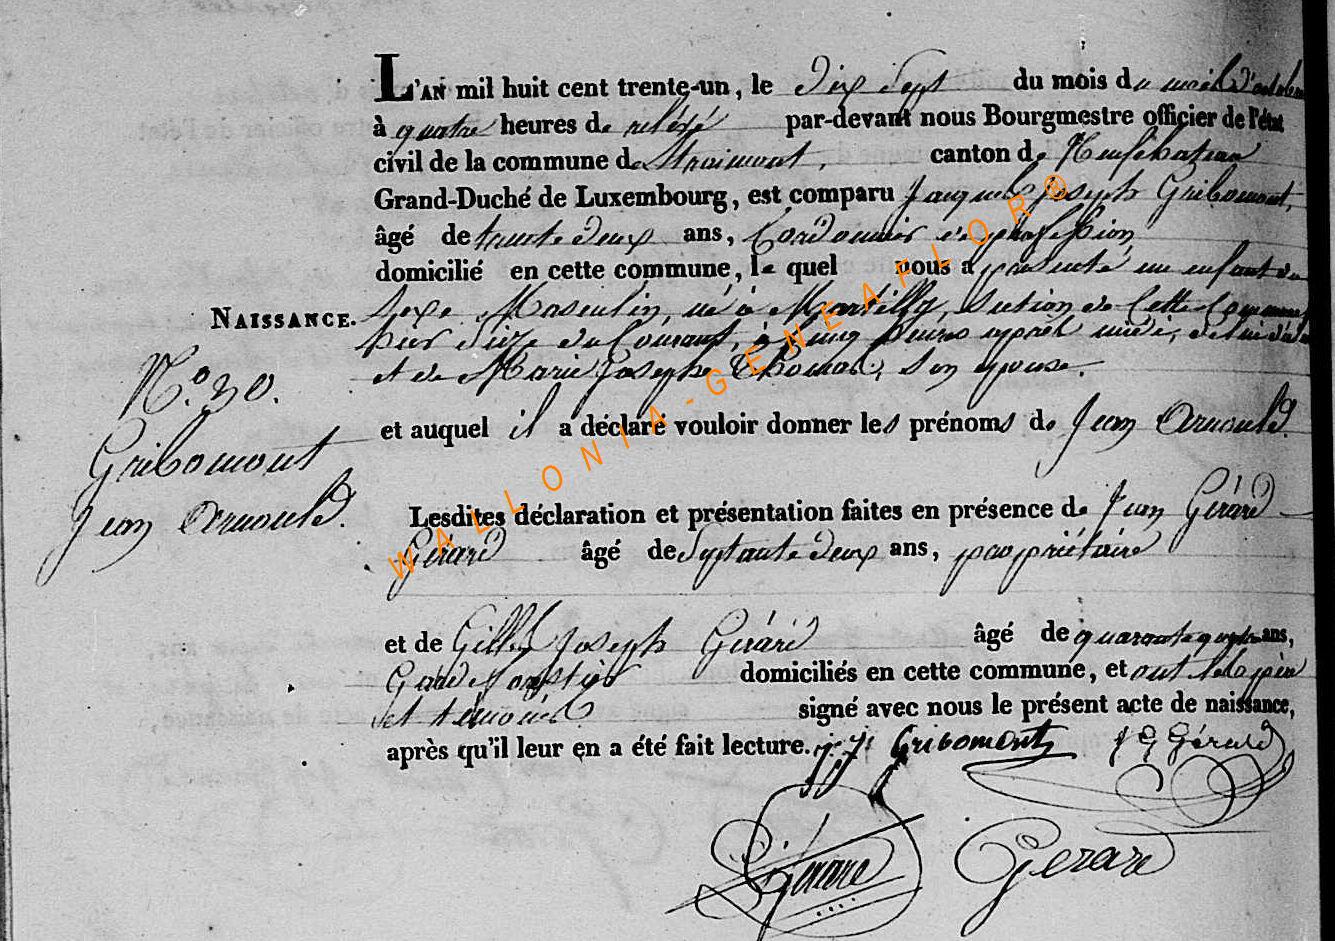 L'AN mil huit cent trente-un, le dix Sept du mois du mois d'octobre
à quatre heures de relevé par-devant nous Bourgmestre officier de l'état
civil de la commune de Straimont, canton de Neufchateau
Grand-Duché de Luxembourg, est comparu Jacques Joseph Gribomont,
âgé de trente deux ans, Cordonnier de profession
domicilié en cette commune, le quel nous a présenté un enfant du
NAISSANCE. Sexe Masculin, né à Martilly, Section de Cette Commune
hier Seize du Courant, à cinq heures après midi, de lui
et de Marie Josephe Thomas, son épouse.
N.° 30.
et auquel il a déclaré vouloir donner les prénoms de Jean Arnould.
Gribomont
Jean Arnould.
Lesdites déclaration et présentation faites en présence de Jean Gérard
Gérard âgé de Septante deux ans, propriétaire
et de Gilles Joseph Gérard âgé de quarante quatre ans,
Garde forestier domiciliés en cette commune, et ont les père
et témoins signé avec nous le présent acte de naissance,
après qu'il leur en a été fait lecture. j. j. Gribomont J G Gérard
Gérard Gerard
WALLONIA-GENEAFLOR®